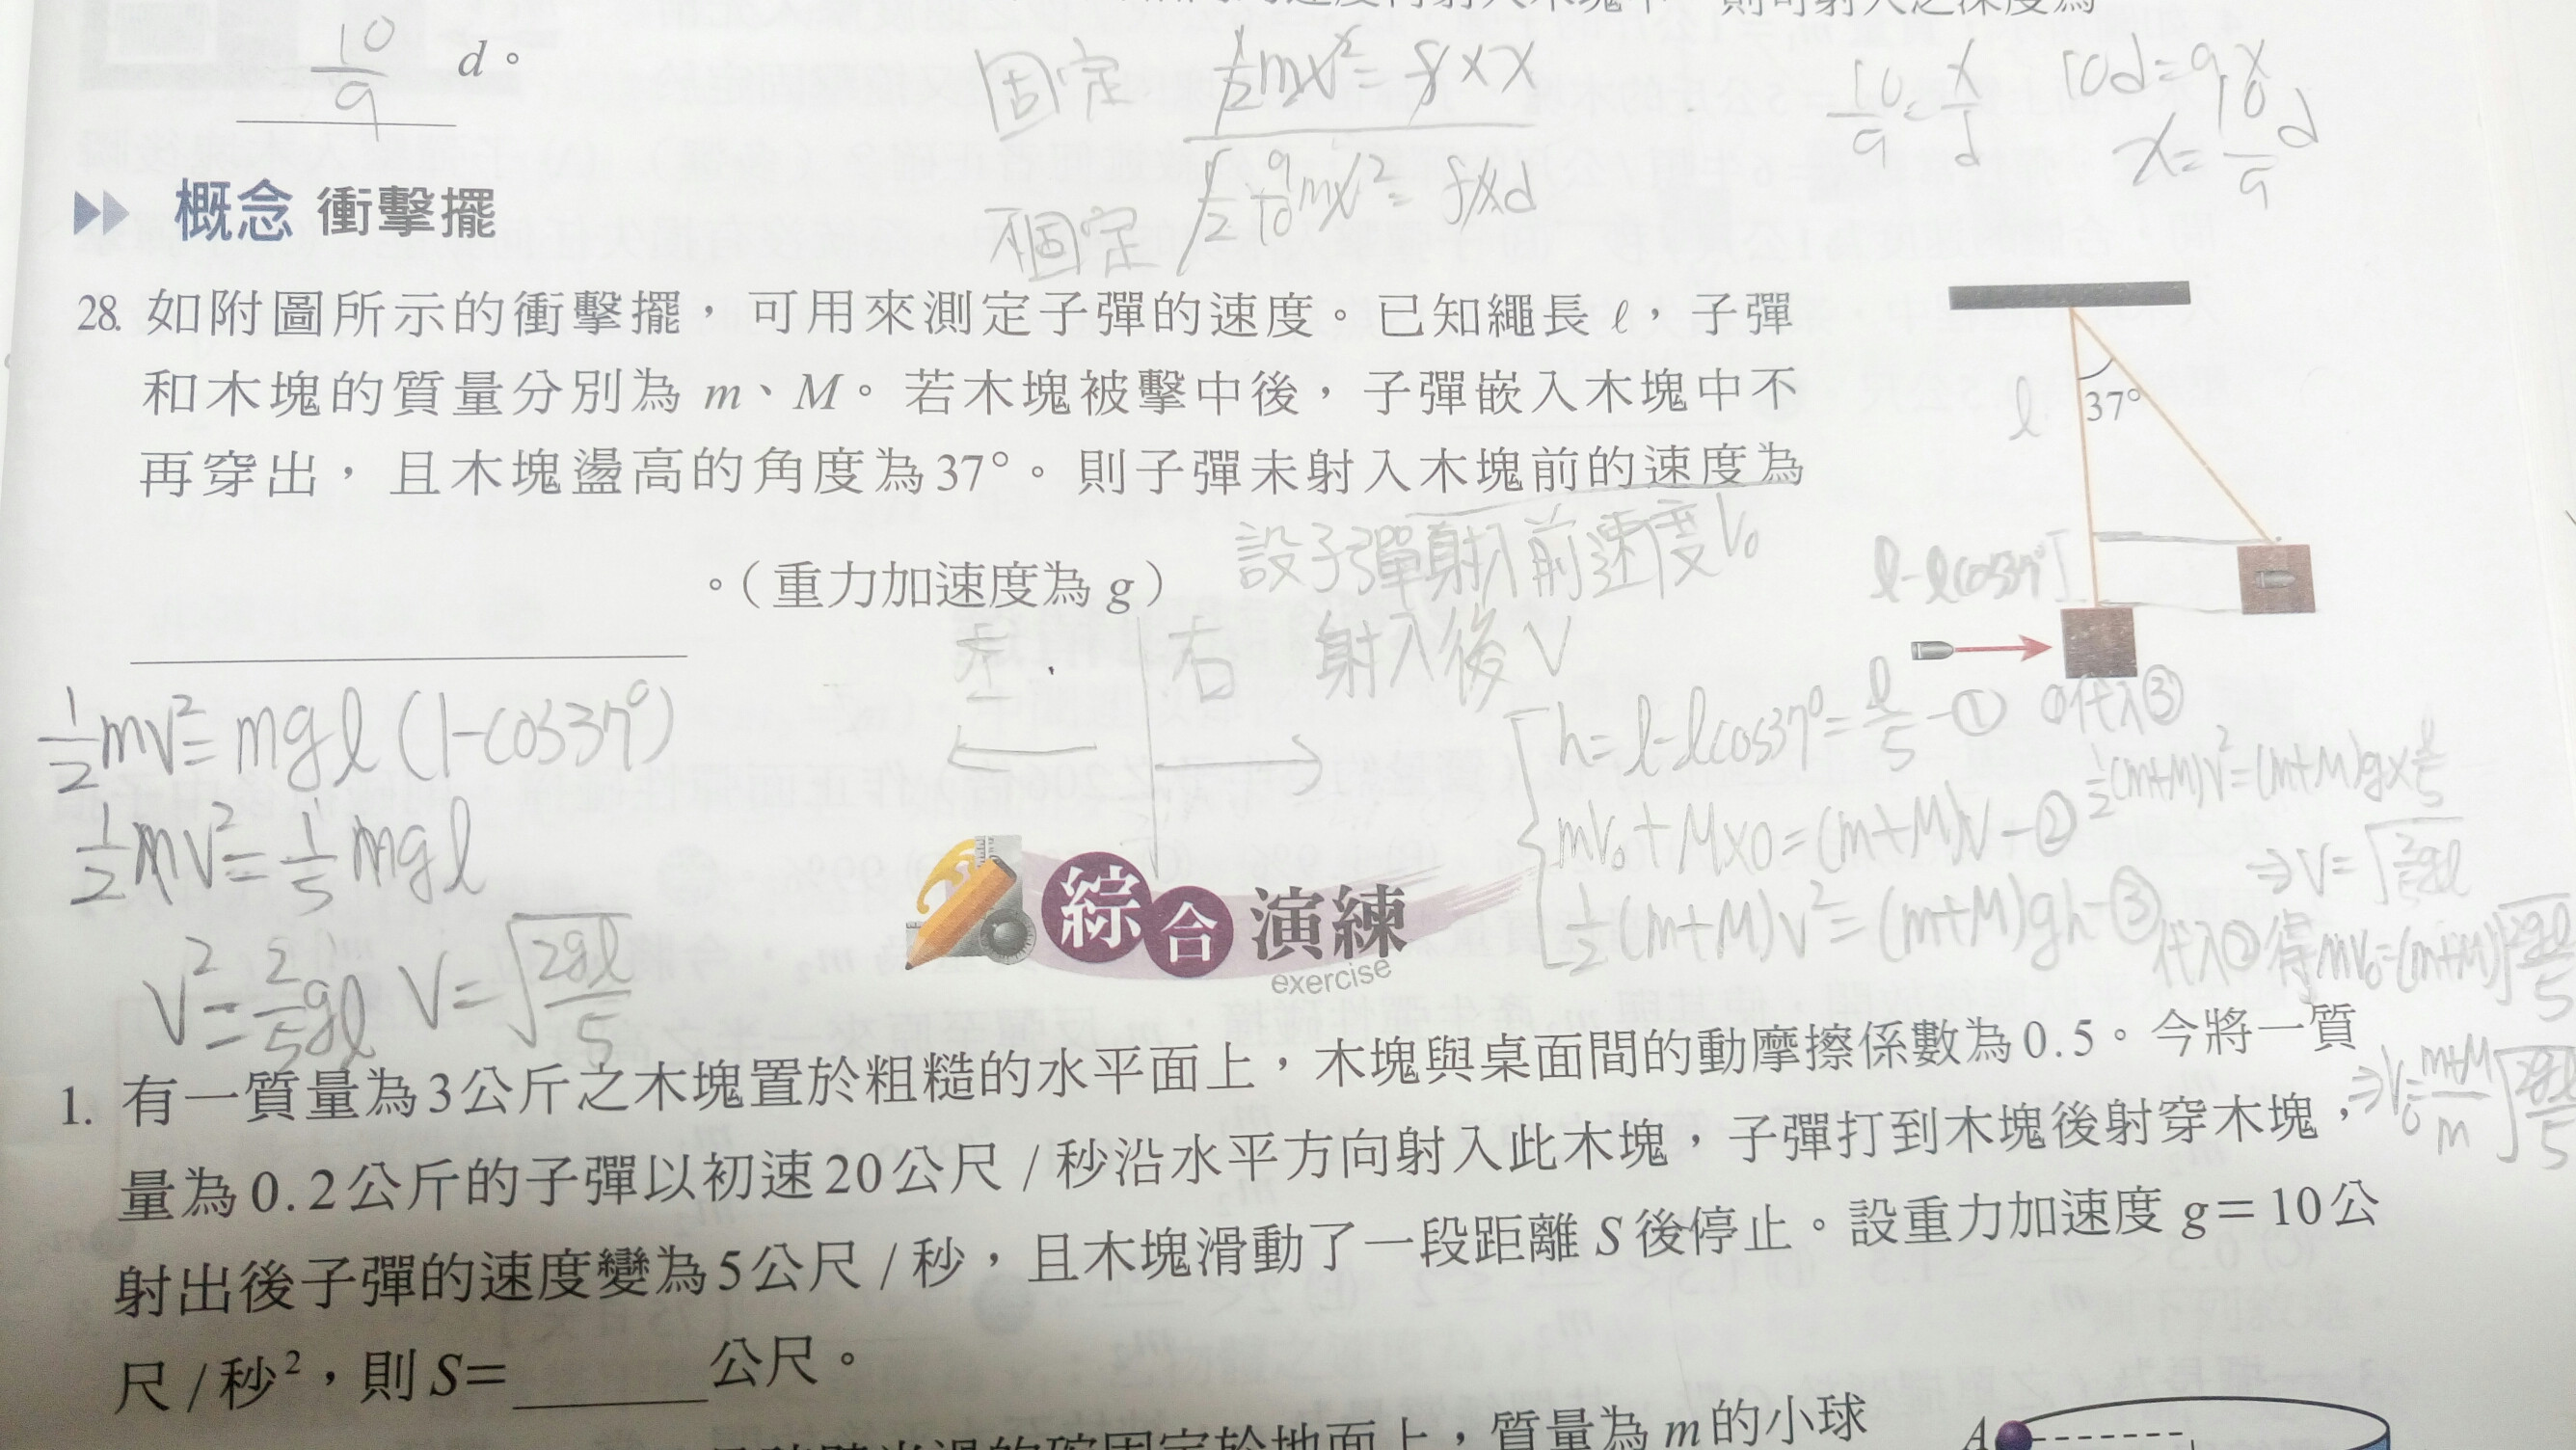 10/9 d。
固定 1/2mv²=f×x
不固定 1/2 9/10mv²=f×d
10/9=x/d 10d=9x
x=10/9d
概念 衝擊擺
28. 如附圖所示的衝擊擺，可用來測定子彈的速度。已知繩長 ℓ，子彈
和木塊的質量分別為 m、M。若木塊被擊中後，子彈嵌入木塊中不
再穿出，且木塊盪高的角度為37°。則子彈未射入木塊前的速度為
。（重力加速度為 g）
ℓ
37°
ℓ-ℓcos37°
設子彈射入前速度V₀
射入後V
左 右
1/2mv²=mgℓ(1-cos37°)
1/2mv²=1/5mgℓ
v²=2/5gℓ V=√(2gℓ/5)
h=ℓ-ℓcos37°=ℓ/5-①
mV₀+M×0=(m+M)V-②
1/2(m+M)v²=(m+M)gh-③
①代入③
1/2(m+M)v²=(m+M)g×ℓ/5
⇒V=√(2/5gℓ)
代入②得mV₀=(m+M)√(2gℓ/5)
⇒V₀=(m+M)/m√(2gℓ/5)
綜合演練
exercise
1. 有一質量為3公斤之木塊置於粗糙的水平面上，木塊與桌面間的動摩擦係數為0.5。今將一質
量為0.2公斤的子彈以初速20公尺/秒沿水平方向射入此木塊，子彈打到木塊後射穿木塊，
射出後子彈的速度變為5公尺/秒，且木塊滑動了一段距離 S 後停止。設重力加速度 g=10公
尺/秒²，則 S=______公尺。
固定於地面上，質量為 m 的小球
A